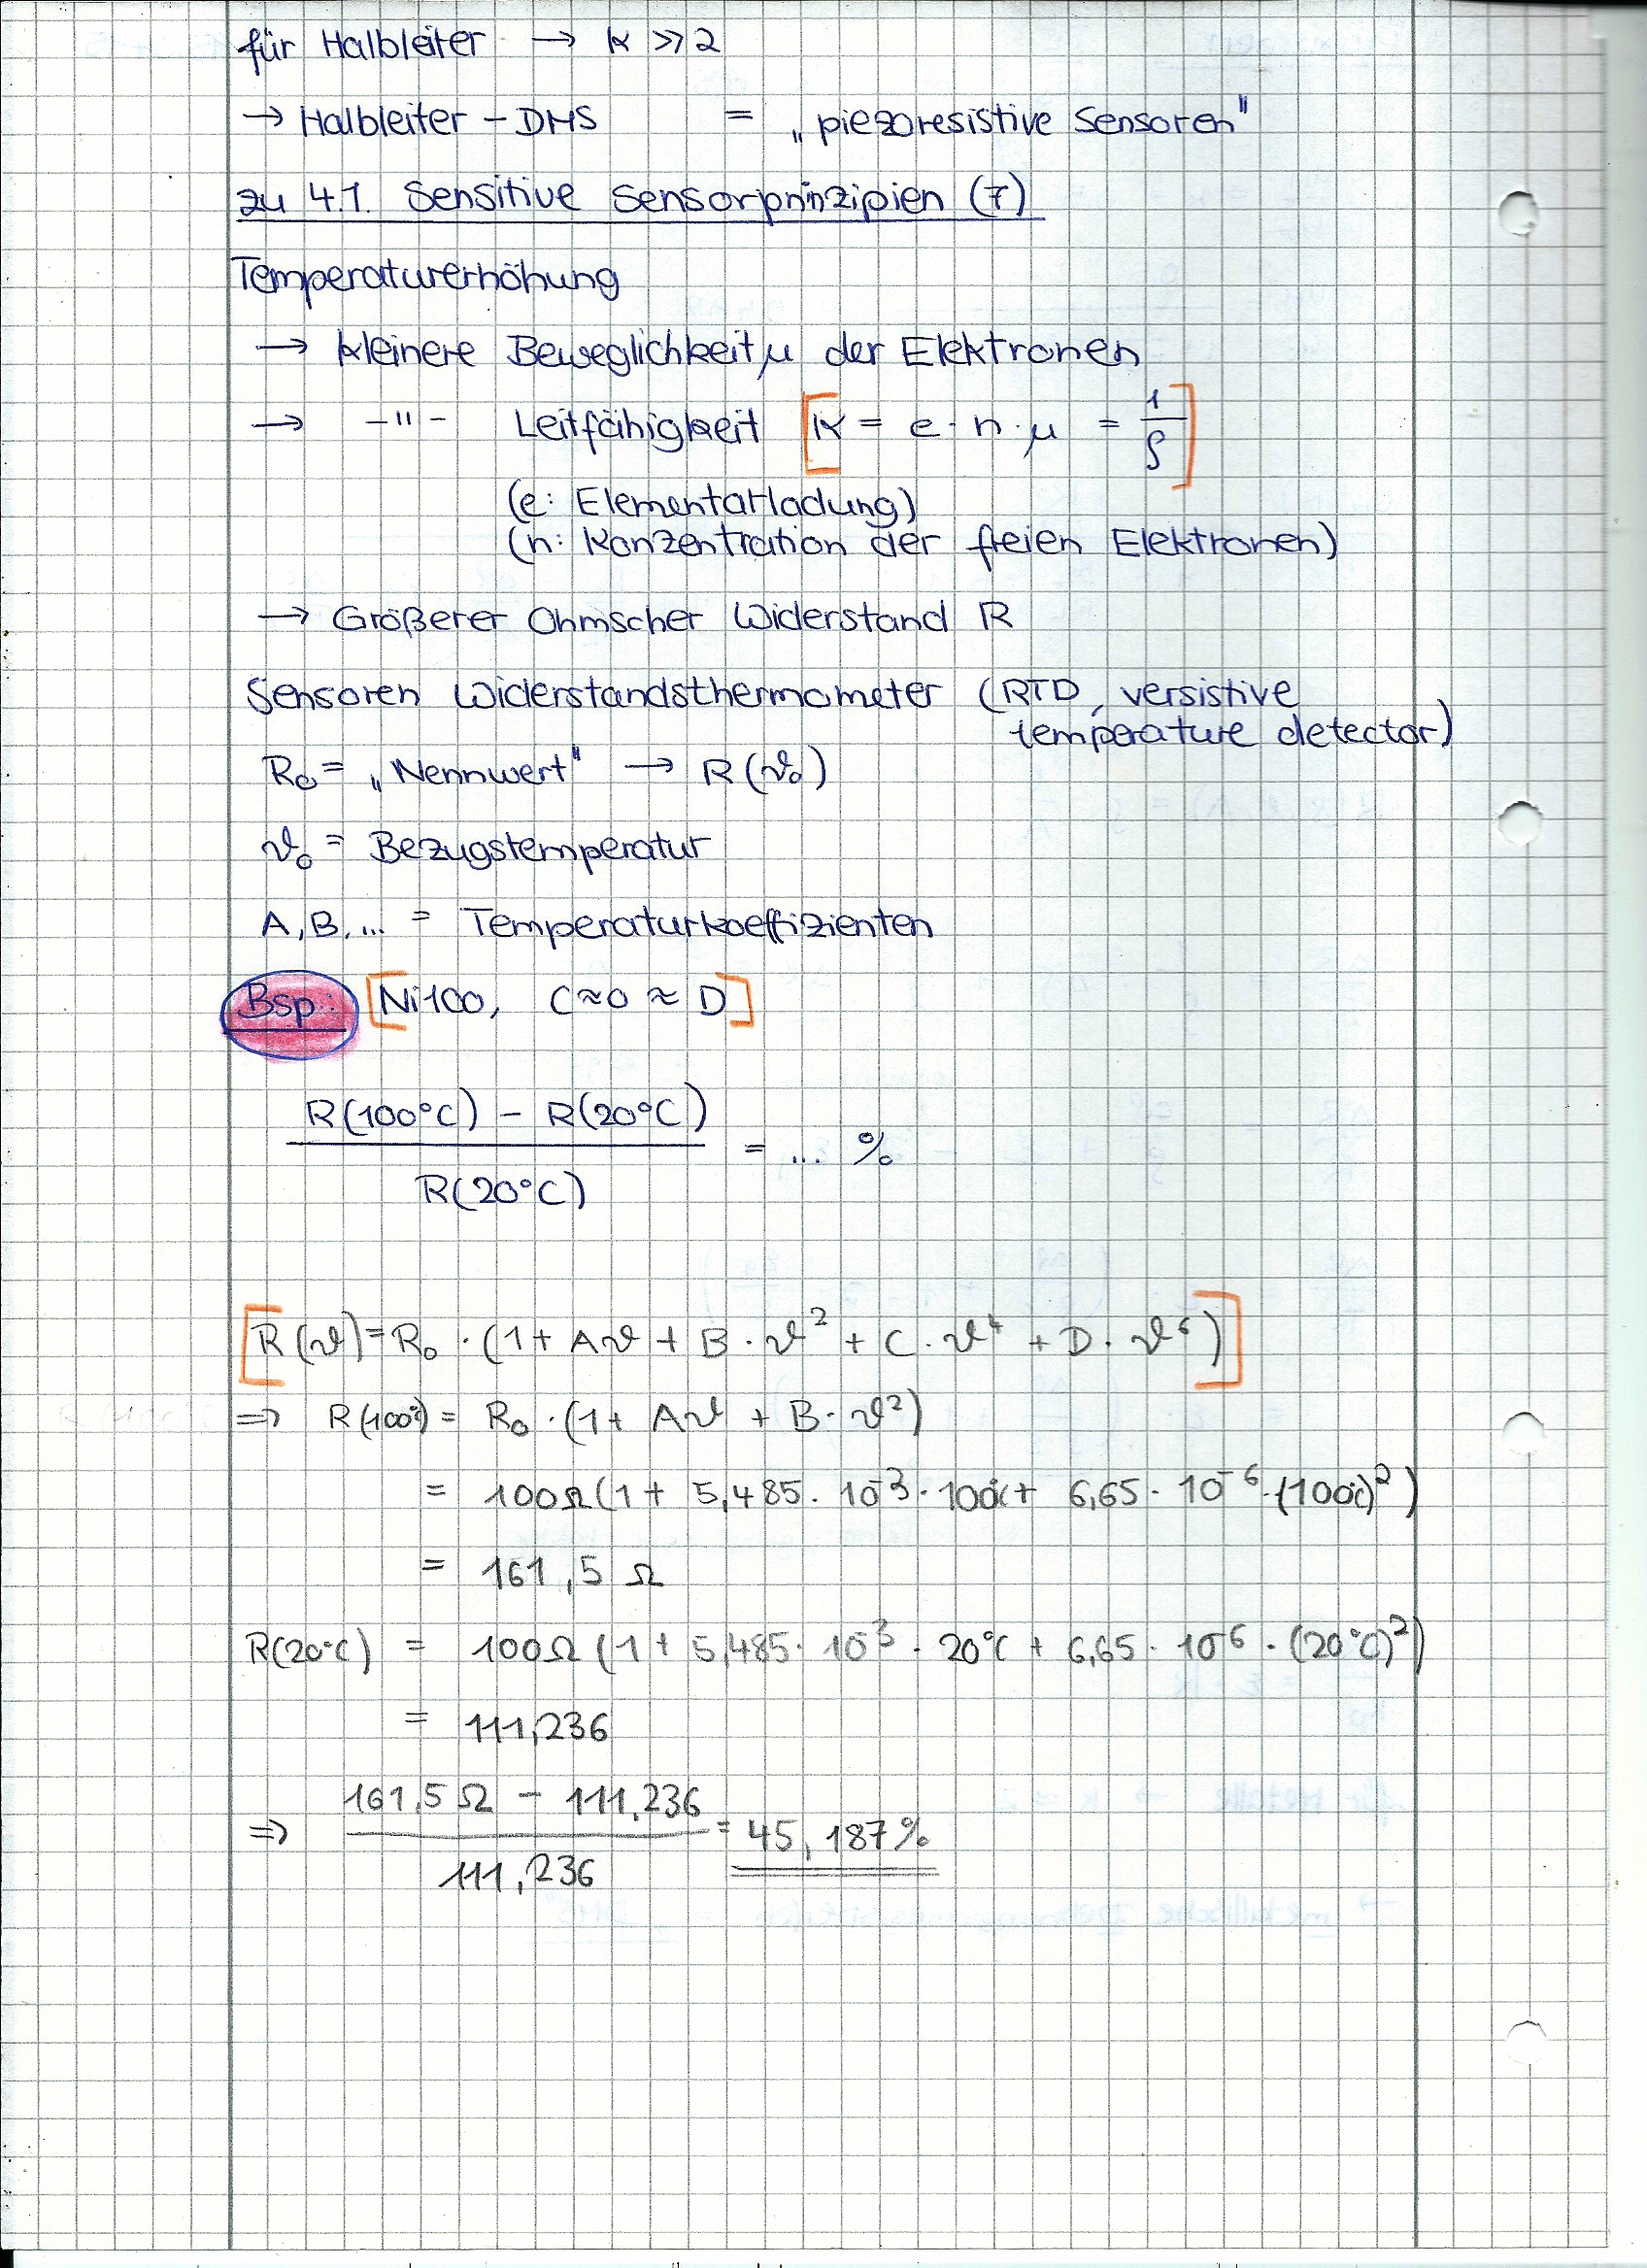 für Halbleiter → K ≫ 2
→ Halbleiter – DMS = „piezoresistive Sensoren"
zu 4.1. Sensitive Sensorprinzipien (7)
Temperaturerhöhung
→ kleinere Beweglichkeit μ der Elektronen
→ –"– Leitfähigkeit [K = e · n · μ = 1/ρ]
(e: Elementarladung)
(n: Konzentration der freien Elektronen)
→ Größerer Ohmscher Widerstand R
Sensoren Widerstandsthermometer (RTD, versistive
temperature detector)
R₀ = „Nennwert" → R(ϑ₀)
ϑ₀ = Bezugstemperatur
A, B, ... = Temperaturkoeffizienten
Bsp.: [Ni100, C≈0≈D]
R(100°C) – R(20°C)
= ... %
R(20°C)
[R(ϑ) = R₀ · (1 + Aϑ + B · ϑ² + C · ϑ⁴ + D · ϑ⁶)]
⇒ R(100°C) = R₀ · (1 + Aϑ + B · ϑ²)
= 100Ω (1 + 5,485 · 10⁻³ · 100°C + 6,65 · 10⁻⁶ · (100°C)²)
= 161,5 Ω
R(20°C) = 100Ω (1 + 5,485 · 10⁻³ · 20°C + 6,65 · 10⁻⁶ · (20°C)²)
= 111,236
161,5 Ω – 111,236
⇒ = 45,187 %
111,236